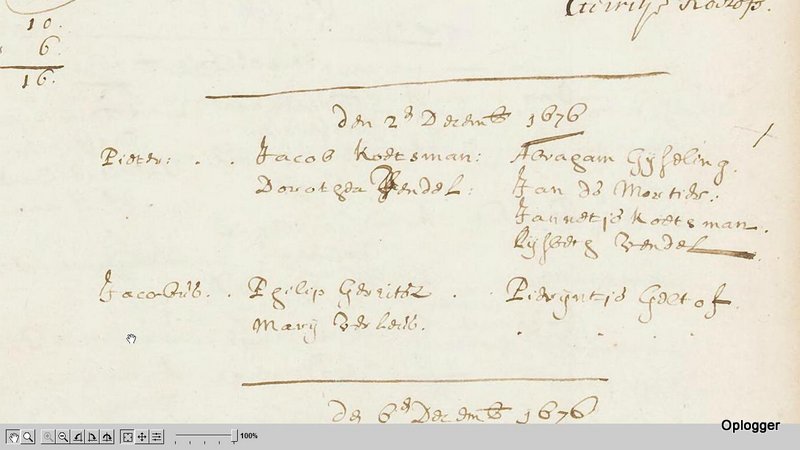 10.
6.
16.
den 2e Decemb 1676
Pieter: . . Jacob Koetsman: Abragam Gyseling.
Dorothea Wendel: Jan de Mortier.:
Jannetje Koetsman.
Lysbeth Wendel
Jacobus. . . Philip Gerritsz . . Pieryntje Geltof.
Mary Verleus.
den 6e Decemb 1676
100%
Oplogger